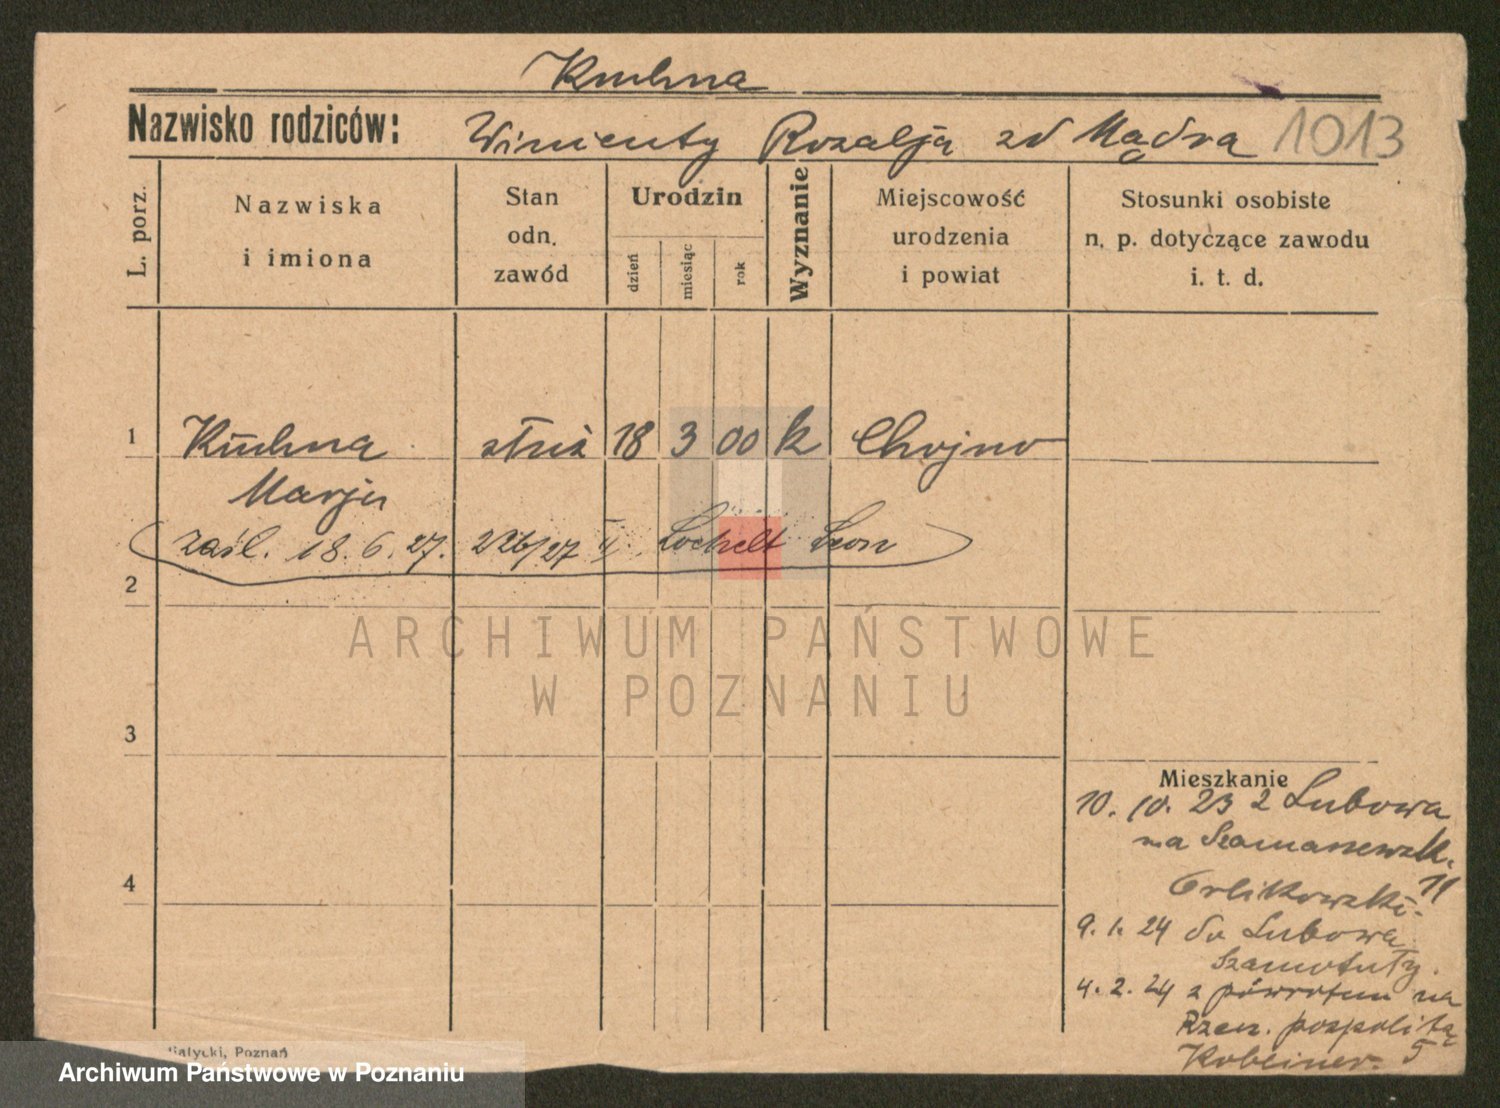 Kuhna
Nazwisko rodziców: Wincenty Rozalja zd Mądra 1013
L. porz.
Nazwiska
i imiona
Stan
odn.
zawód
Urodzin
dzień
miesiąc
rok
Wyznanie
Miejscowość
urodzenia
i powiat
Stosunki osobiste
n. p. dotyczące zawodu
i. t. d.
1 Kuhna służ 18 3 00 k Chojno
Marja
zaśl. 18. 6. 27. 226/27 II Lochelt Leon
2
ARCHIWUM PAŃSTWOWE
W POZNANIU
3
4
Mieszkanie
10. 10. 23 z Lubowa
na
Orlikowski 11
9. 1. 24 do Lubowa
Szamotuły.
4. 2. 24 z powrotem na
Rzeu. pospolitą
5
Białycki, Poznań
Archiwum Państwowe w Poznaniu